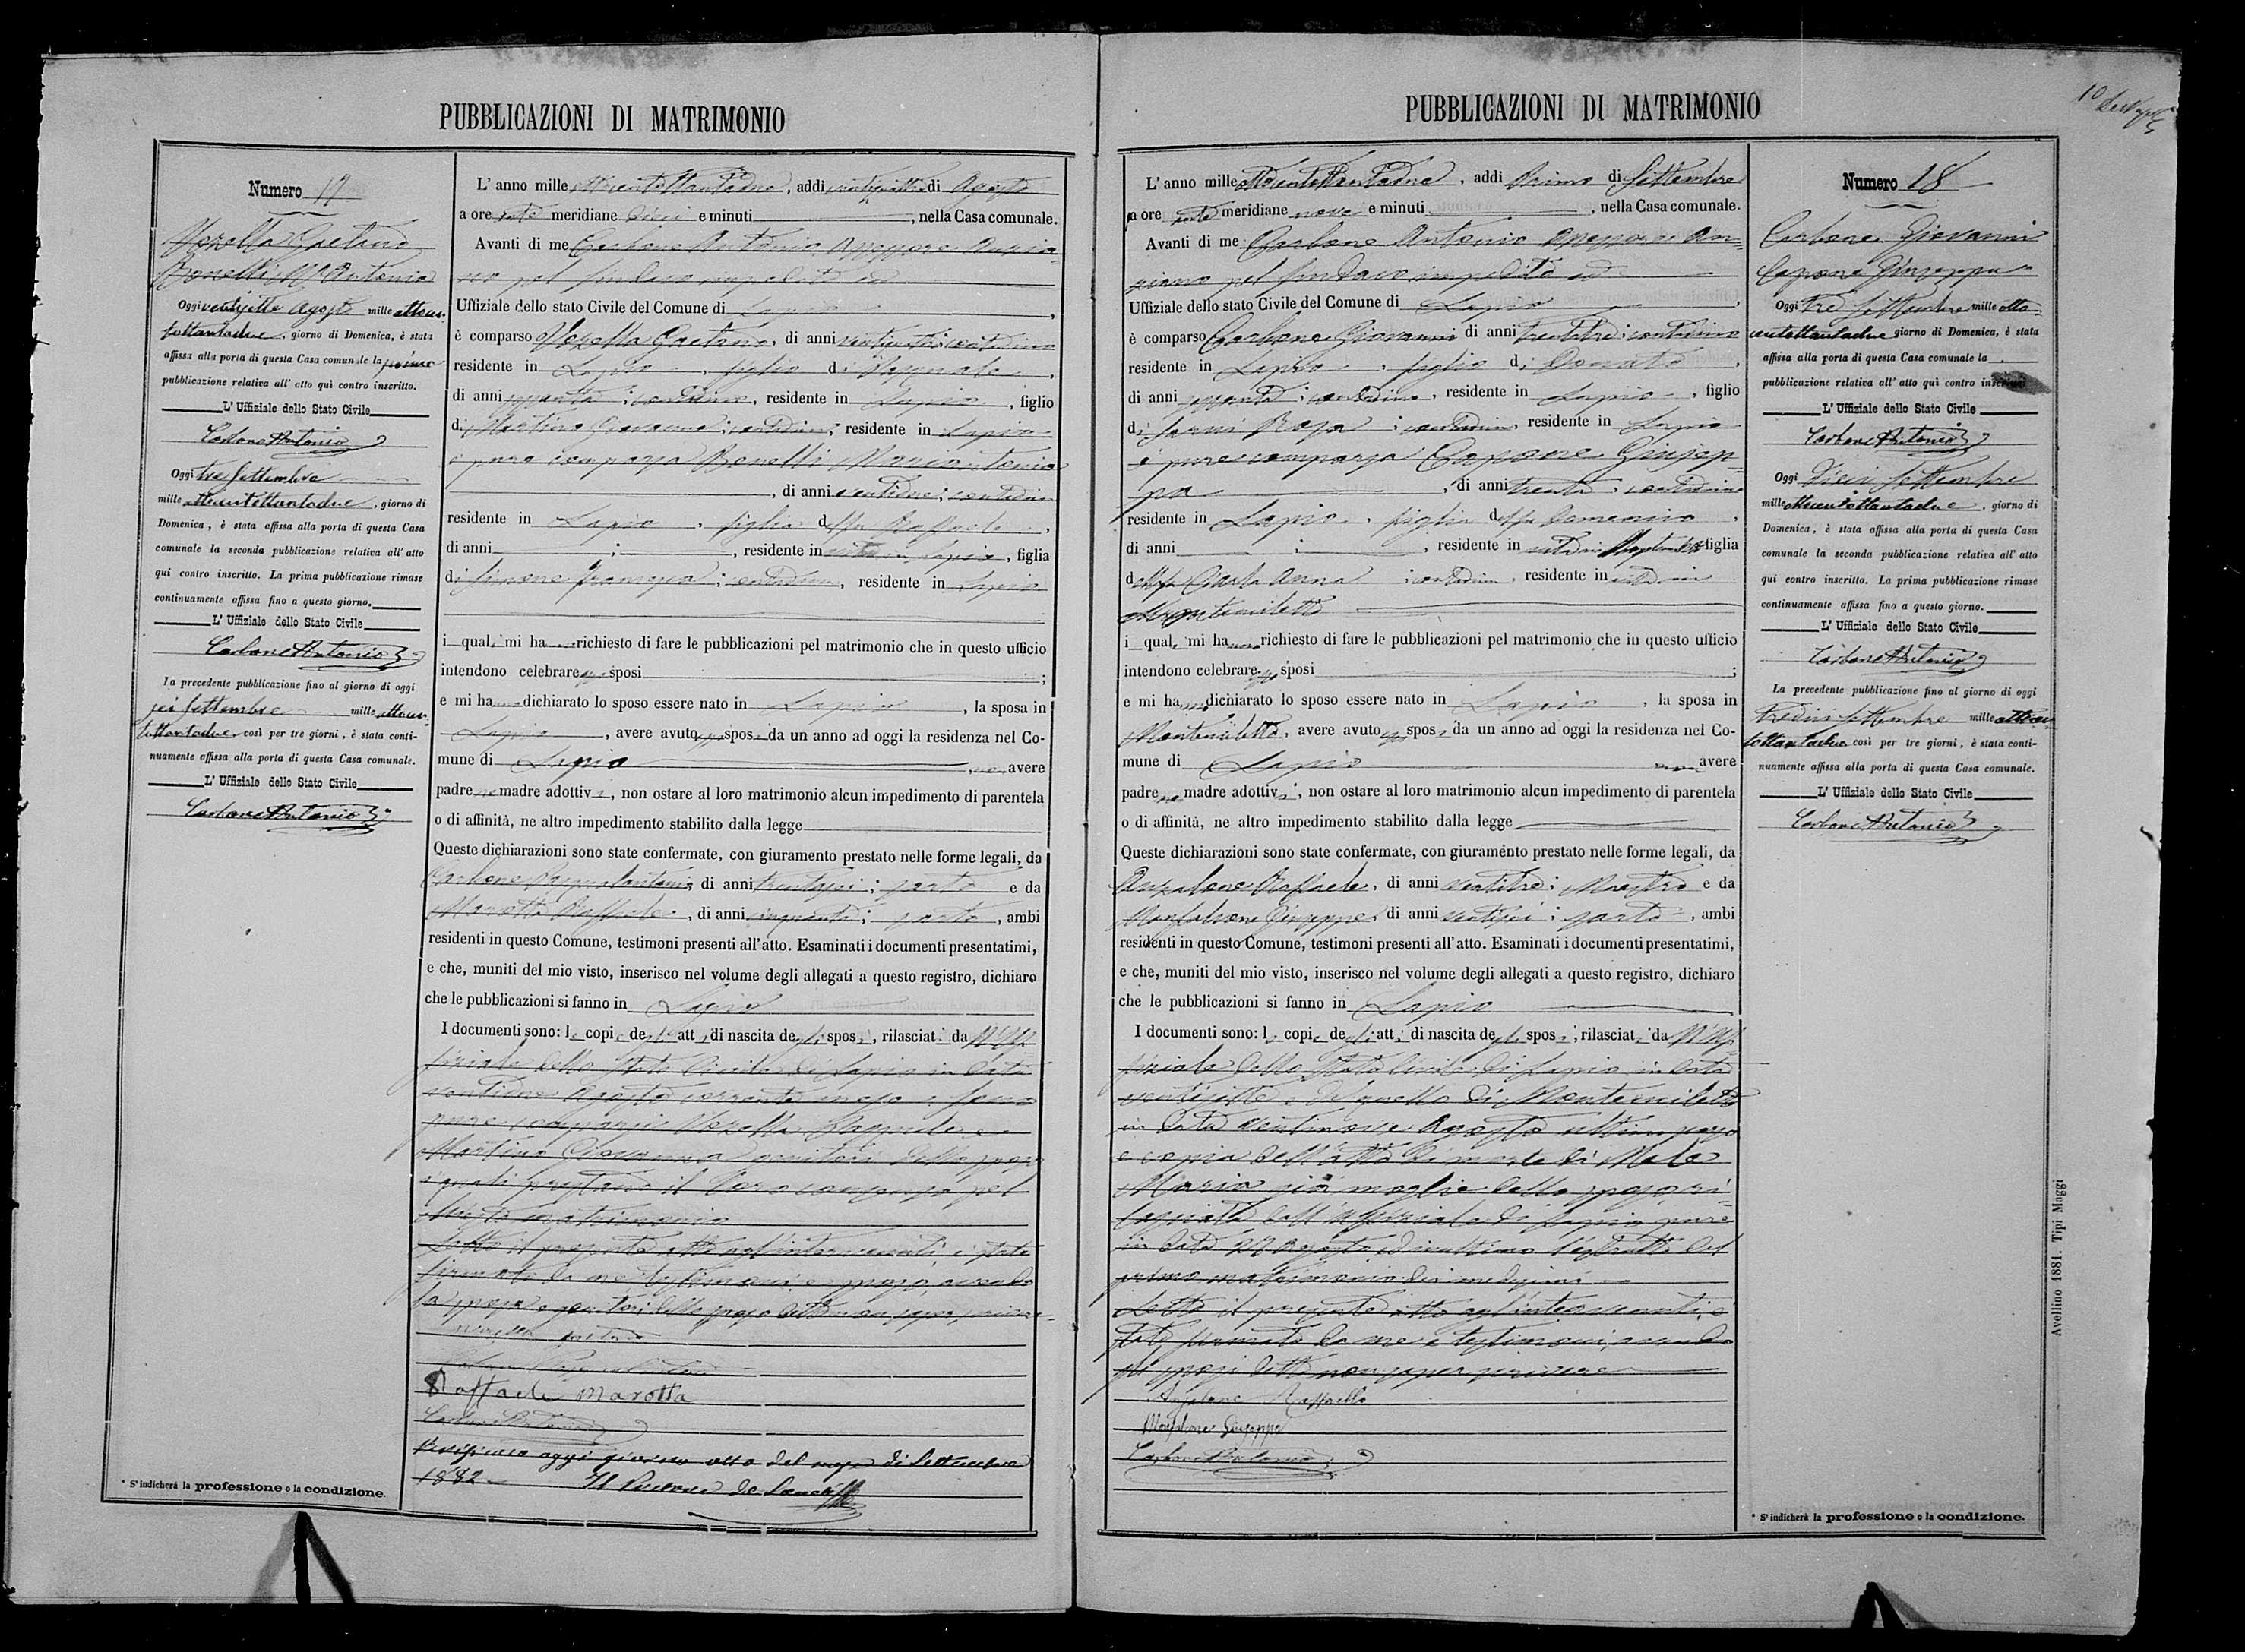 PUBBLICAZIONI DI MATRIMONIO
Numero 17
Mozella Gaetano
Bonelli Mª Antonia
Oggi ventisette Agosto mille ottocen-
tottantadue, giorno di Domenica, è stata
affissa alla porta di questa Casa comunale la prima
pubblicazione relativa all' atto quì contro inscritto.
L' Uffiziale dello Stato Civile
Carbone Antonio
Oggi tre Settembre
mille ottocentottantadue, giorno di
Domenica, è stata affissa alla porta di questa Casa
comunale la seconda pubblicazione relativa all' atto
qui contro inscritto. La prima pubblicazione rimase
continuamente affissa fino a questo giorno.
L' Uffiziale dello Stato Civile
Carbone Antonio
La precedente pubblicazione fino al giorno di oggi
sei Settembre mille ottocen-
tottantadue, così per tre giorni, è stata conti-
nuamente affissa alla porta di questa Casa comunale.
L' Uffiziale dello Stato Civile
Carbone Antonio
* S' indicherà la professione o la condizione.
L' anno mille ottocentottantadue, addì ventiquattro di Agosto
a ore ante meridiane dieci e minuti, nella Casa comunale.
Avanti di me Carbone Antonio Assessore Anzia-
no pel Sindaco impedito ed
Uffiziale dello stato Civile del Comune di Lapio,
è comparso Mozella Gaetano, di anni ventitre; contadino
residente in Lapio, figlio di Pasquale,
di anni sessanta; contadino, residente in Lapio, figlio
di Martino Giovanna; contadina; residente in Lapio
è pure comparsa Bonelli Mariantonia
, di anni ventidue; contadina
residente in Lapio, figlia del fu Raffaele,
di anni ; , residente in vita in Lapio, figlia
di Simone Francesca; contadina, residente in Lapio
i quali mi hanno richiesto di fare le pubblicazioni pel matrimonio che in questo ufficio
intendono celebrare essi sposi ;
e mi hanno dichiarato lo sposo essere nato in Lapio, la sposa in
Lapio, avere avuto essi sposi da un anno ad oggi la residenza nel Co-
mune di Lapio, non avere
padre ne madre adottivi, non ostare al loro matrimonio alcun impedimento di parentela
o di affinità, ne altro impedimento stabilito dalla legge
Queste dichiarazioni sono state confermate, con giuramento prestato nelle forme legali, da
Carbone Pasqualantonio di anni trentasei; sarto e da
Marotta Raffaele, di anni cinquanta; sarto, ambi
residenti in questo Comune, testimoni presenti all' atto. Esaminati i documenti presentatimi,
e che, muniti del mio visto, inserisco nel volume degli allegati a questo registro, dichiaro
che le pubblicazioni si fanno in Lapio
I documenti sono: le copie degli atti di nascita degli sposi, rilasciati da N'Uf-
fiziale dello Stato Civile di Lapio in data
ventidue Agosto corrente mese e sono
pure comparsi Mozella Pasquale e
Martino Giovanna genitori dello sposo
i quali prestano il loro consenso pel
detto matrimonio
Letto il presente atto agl'intervenuti, è stato
firmato da me testimoni e sposo, avendo
la sposa e genitori dello sposo detto non saper scrivere
Mozella Gaetano
Carbone Pasqualantonio
Raffaele Marotta
Carbone Antonio
Verificato oggi giorno otto del mese di Settembre
1882 Il Pretore
PUBBLICAZIONI DI MATRIMONIO
10
L' anno mille ottocentottantadue, addì Primo di Settembre
a ore ante meridiane nove e minuti, nella Casa comunale.
Avanti di me Carbone Antonio Assessore An-
ziano pel Sindaco impedito ed
Uffiziale dello stato Civile del Comune di Lapio,
è comparso Carbone Giovanni di anni trentatre; contadino
residente in Lapio, figlio di Donato,
di anni sessanta; contadino, residente in Lapio, figlio
di Sarni Rosa; contadina, residente in Lapio
è pure comparsa Capone Giusep-
pa, di anni trenta; contadina
residente in Lapio, figlia del fu Domenico,
di anni ; , residente in vita in figlia
della fu Ciarla Anna; contadina, residente in vita in
Montemiletto
i quali mi hanno richiesto di fare le pubblicazioni pel matrimonio che in questo ufficio
intendono celebrare essi sposi ;
e mi hanno dichiarato lo sposo essere nato in Lapio, la sposa in
Montemiletto, avere avuto essi sposi da un anno ad oggi la residenza nel Co-
mune di Lapio non avere
padre ne madre adottivi, non ostare al loro matrimonio alcun impedimento di parentela
o di affinità, ne altro impedimento stabilito dalla legge
Queste dichiarazioni sono state confermate, con giuramento prestato nelle forme legali, da
Anzalone Raffaele, di anni ventitre; Maestro e da
Monfalcone Giuseppe, di anni ventisei; sarto, ambi
residenti in questo Comune, testimoni presenti all' atto. Esaminati i documenti presentatimi,
e che, muniti del mio visto, inserisco nel volume degli allegati a questo registro, dichiaro
che le pubblicazioni si fanno in Lapio
I documenti sono: le copie degli atti di nascita degli sposi, rilasciati da N'Uf-
fiziale dello Stato Civile di Lapio in data
ventisette e da quello di Montemiletto
in data ventinove Agosto ultimo scorso
e copia dell'atto di morte di Mele
Maria già moglie dello sposo ri-
lasciata dall'Uffiziale di Lapio pure
in data 27 Agosto ed in ultimo l'estratto del
primo matrimonio dei medesimi
Letto il presente atto agl'intervenuti, è
stato firmato da me e testimoni, avendo
gli sposi detto non saper scrivere
Anzalone Raffaele
Monfalcone Giuseppe
Carbone Antonio
Numero 18
Carbone Giovanni
Capone Giuseppa
Oggi Tre Settembre mille otto-
centottantadue giorno di Domenica, è stata
affissa alla porta di questa Casa comunale la
pubblicazione relativa all' atto quì contro inscritto
L' Uffiziale dello Stato Civile
Carbone Antonio
Oggi Dieci Settembre
mille ottocentottantadue, giorno di
Domenica, è stata affissa alla porta di questa Casa
comunale la seconda pubblicazione relativa all' atto
qui contro inscritto. La prima pubblicazione rimase
continuamente affissa fino a questo giorno.
L' Uffiziale dello Stato Civile
Carbone Antonio
La precedente pubblicazione fino al giorno di oggi
tredici Settembre mille ottocen-
tottantadue così per tre giorni, è stata conti-
nuamente affissa alla porta di questa Casa comunale.
L' Uffiziale dello Stato Civile
Carbone Antonio
Avellino 1881. Tipi Maggi
* S' indicherà la professione o la condizione.